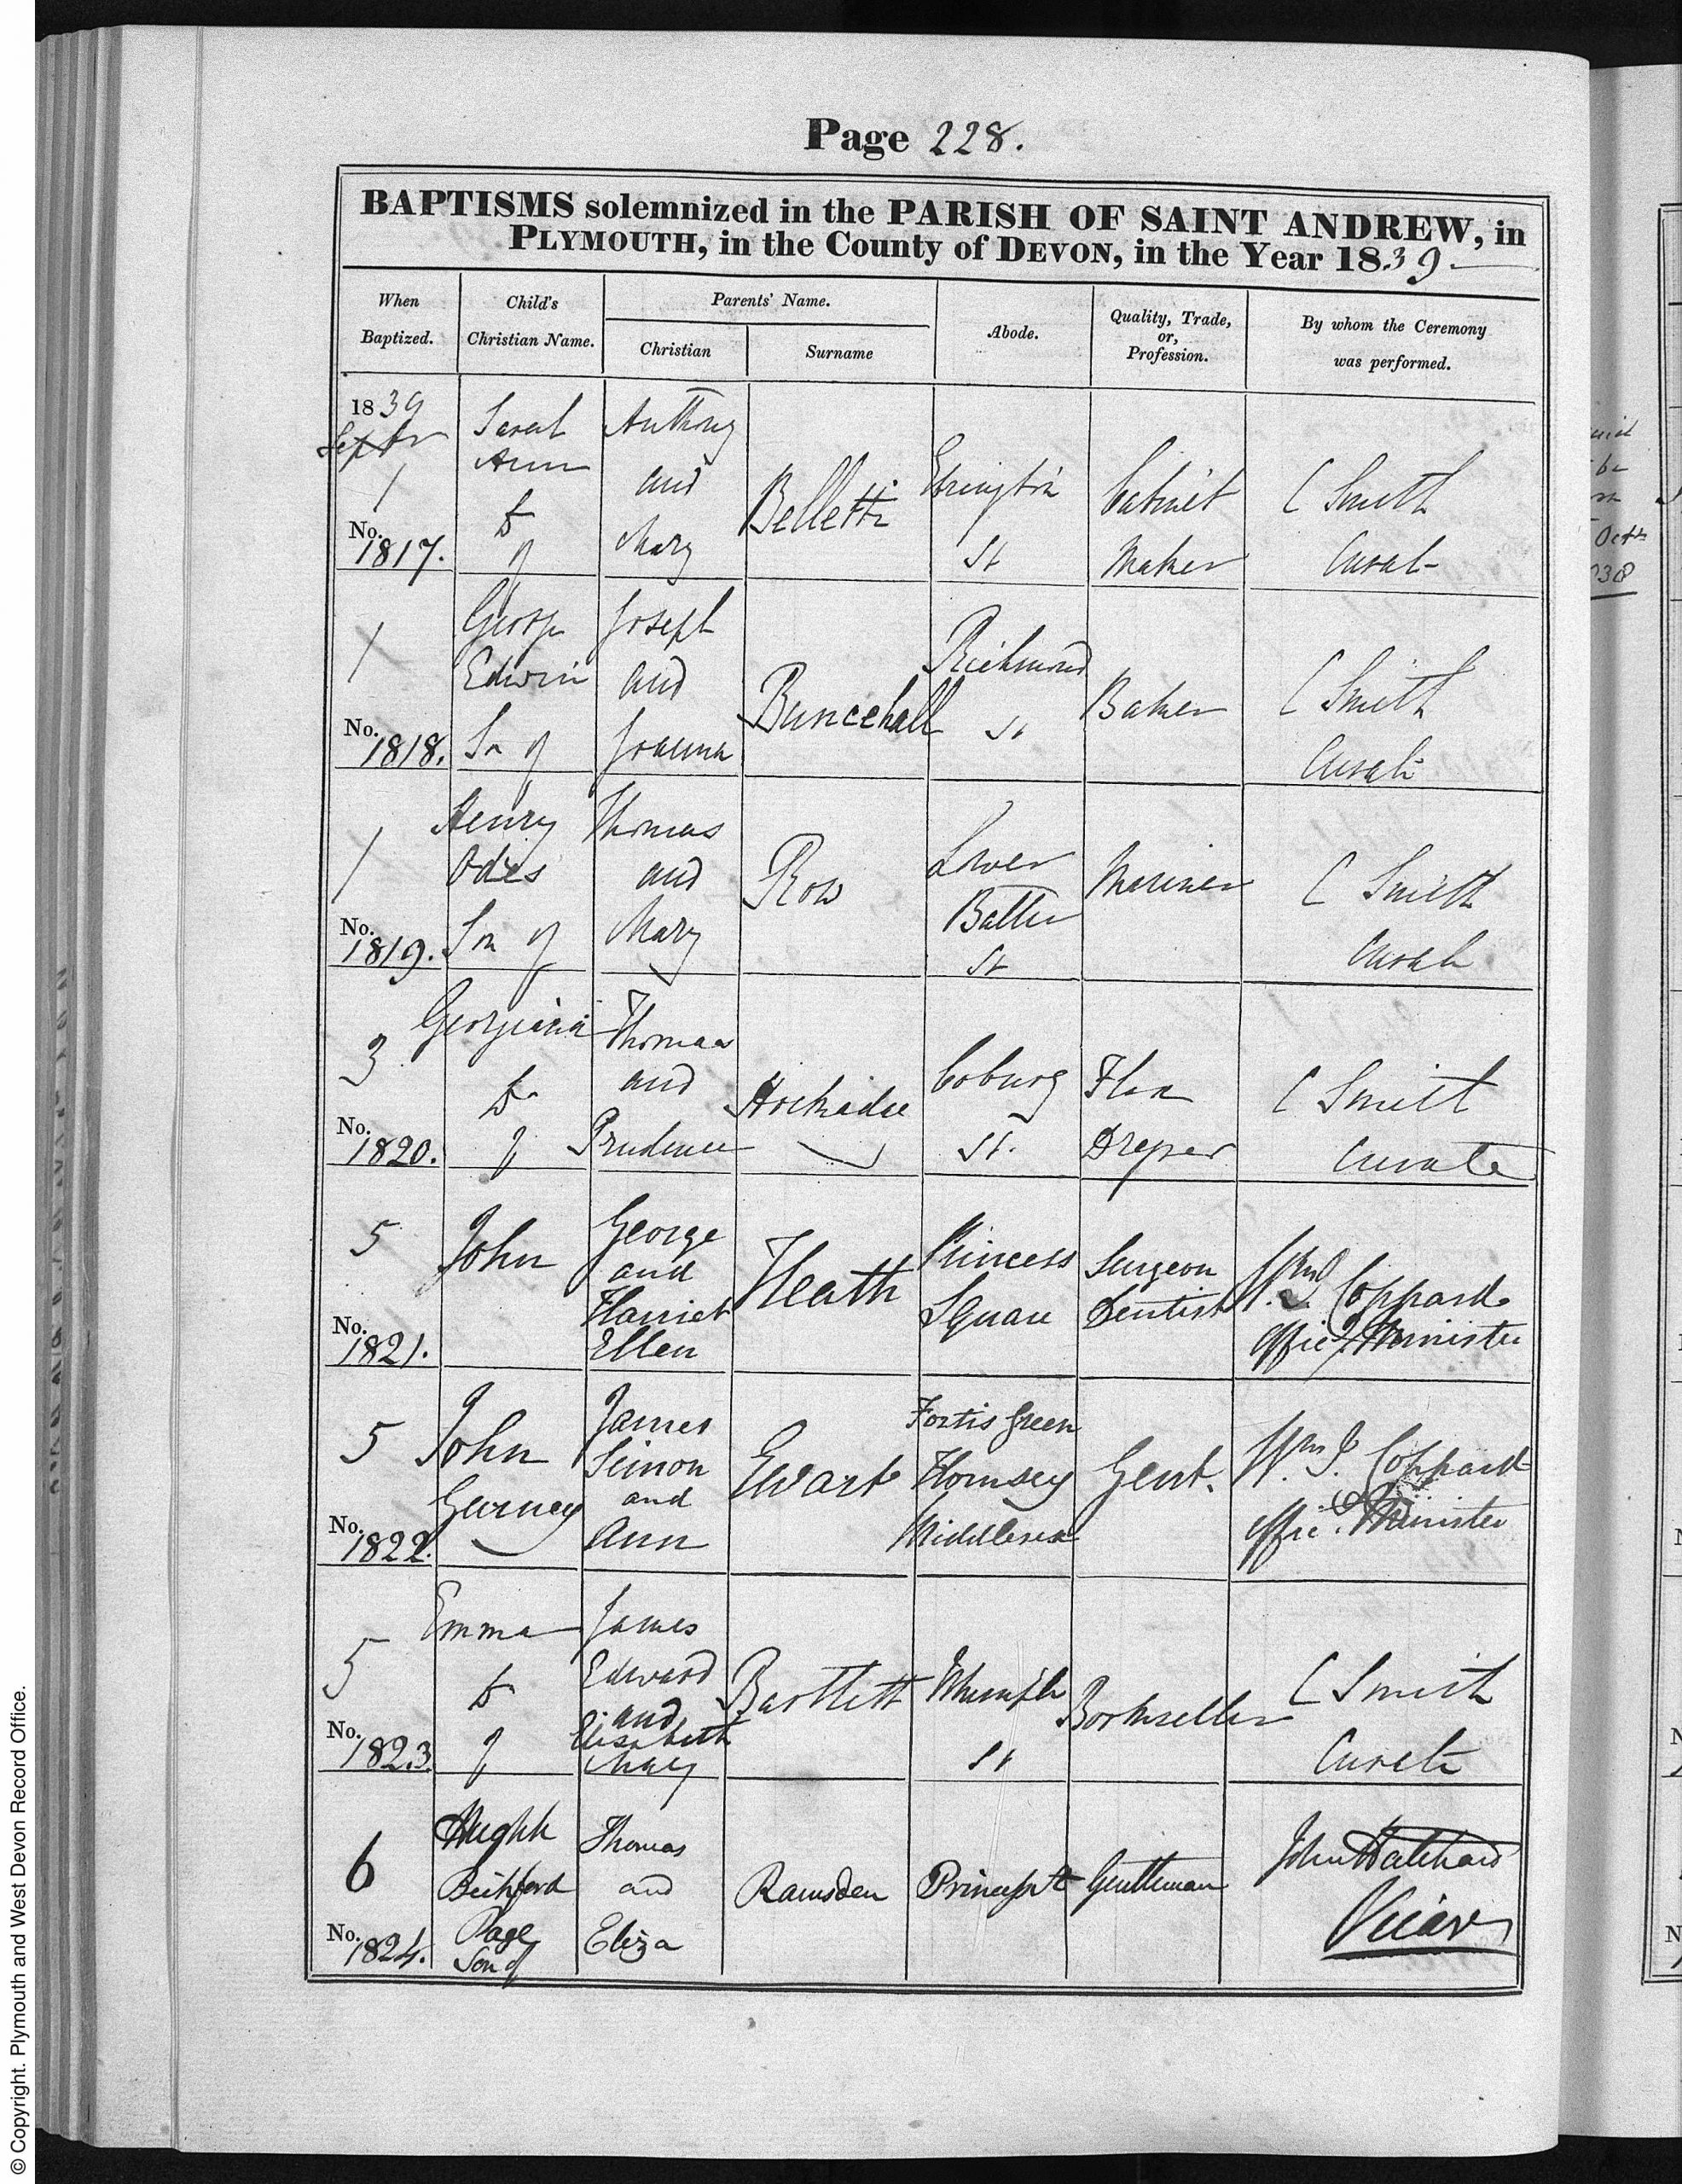 Page 228.
BAPTISMS solemnized in the PARISH OF SAINT ANDREW, in
PLYMOUTH, in the County of DEVON, in the Year 1839.
When Baptized.
Child's Christian Name.
Parents' Name.
Christian
Surname
Abode.
Quality, Trade, or, Profession.
By whom the Ceremony was performed.
1839
Septbr
1
No. 1817.
Sarah
Ann
D
of
Anthony
and
Mary
Belletti
Ebrington
St
Cabinet
Maker
C Smith
Curate
1
No. 1818.
George
Edwin
Sn of
Joseph
and
Joanna
Buncehall
Richmond
St
Baker
C Smith
Curate
1
No. 1819.
Henry
Odes
Sn of
Thomas
and
Mary
Row
Lower
Batter
St
Mariner
C Smith
Curate
3
No. 1820.
Georgiana
D
of
Thomas
and
Prudence
Coburg
St.
Draper
C Smith
Curate
5
No. 1821.
John
George
and
Harriet
Ellen
Heath
Princess
Square
Surgeon
Dentist
Wm. J. Coppard
Offic. Minister
5
No. 1822.
John
Gurney
James
Simon
and
Ann
Ewart
Fortis Green
Hornsey
Middlesex
Gent.
Wm. J. Coppard
Offic. Minister
5
No. 1823.
Emma
D
of
James
Edward
and
Elizabeth
Mary
Bartlett
St
Bookseller
C Smith
Curate
6
No. 1824.
Hughh
Bickford
Page
Son of
Thomas
and
Eliza
Ramsden
Gentleman
John Hatchard
Vicar
Octr
© Copyright. Plymouth and West Devon Record Office.